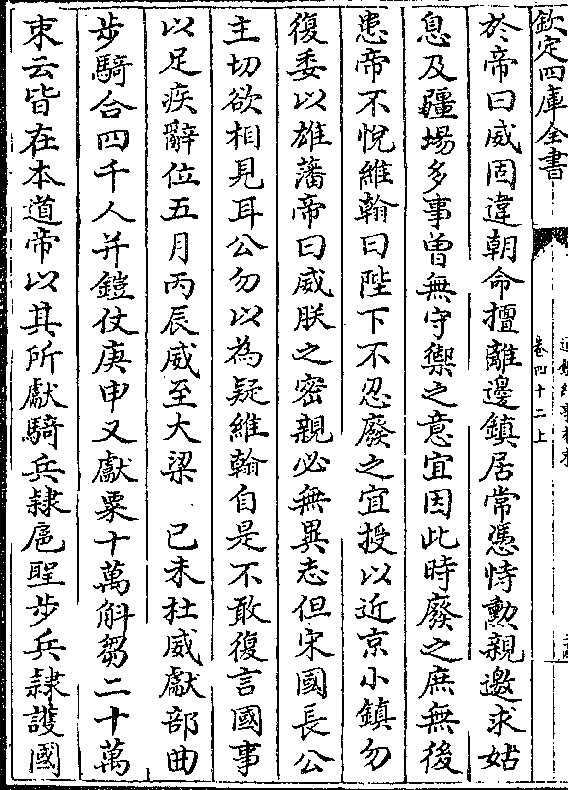 欽定四庫全書
卷四十二上
於帝曰威固違朝命擅離邊鎮居常憑恃勲親邀求姑
息及疆場多事曽無守禦之意宜因此時廢之庶無後
患帝不悅維翰曰陛下不忍廢之宜授以近京小鎮勿
復委以雄藩帝曰威朕之密親必無異志但宋國長公
主切欲相見耳公勿以為疑維翰自是不敢復言國事
以足疾辭位五月丙辰威至大梁 己未杜威獻部曲
步騎合四千人并鎧仗庚申又獻粟十萬斛芻二十萬
束云皆在本道帝以其所獻騎兵隸扈聖步兵隸䕶國